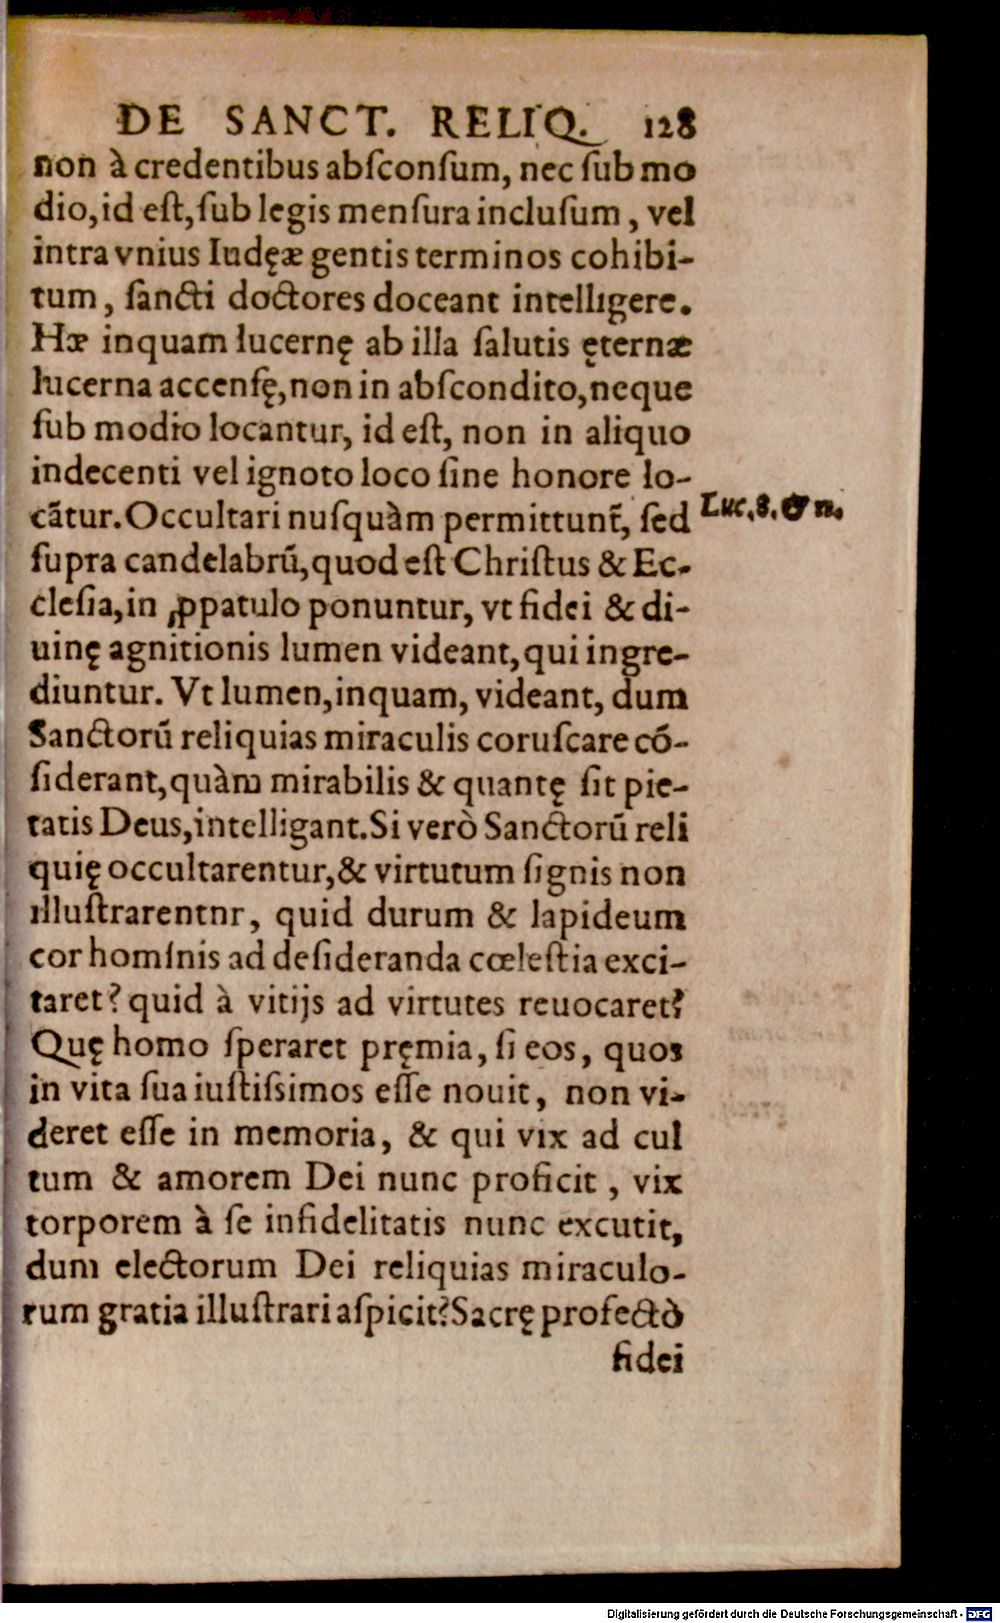 DE SANCT. RELIQ. 128
non à credentibus abſconſum, nec ſub mo
dio, id eſt, ſub legis menſura incluſum, vel
intra vnius Iudęæ gentis terminos cohibi-
tum, ſancti doctores doceant intelligere.
Hæ inquam lucernę ab illa ſalutis ęternæ
lucerna accenſę, non in abſcondito, neque
ſub modio locantur, id eſt, non in aliquo
indecenti vel ignoto loco ſine honore lo-
cãtur. Occultari nuſquàm permittunt̃, ſed
Luc. 8. & 11.
ſupra candelabrũ, quod eſt Chriſtus & Ec-
cleſia, in ꝓpatulo ponuntur, vt fidei & di-
uinę agnitionis lumen videant, qui ingre-
diuntur. Vt lumen, inquam, videant, dum
Sanctorũ reliquias miraculis coruſcare cõ-
ſiderant, quàm mirabilis & quantę ſit pie-
tatis Deus, intelligant. Si verò Sanctorũ reli
quię occultarentur, & virtutum ſignis non
illuſtrarentnr, quid durum & lapideum
cor homínis ad deſideranda cœleſtia exci-
taret? quid à vitijs ad virtutes reuocaret?
Quę homo ſperaret pręmia, ſi eos, quos
in vita ſua iuſtiſsimos eſſe nouit, non vi-
deret eſſe in memoria, & qui vix ad cul
tum & amorem Dei nunc proficit, vix
torporem à ſe infidelitatis nunc excutit,
dum electorum Dei reliquias miraculo-
rum gratia illuſtrari aſpicit? Sacrę profectò
fidei
Digitalisierung gefördert durch die Deutsche Forschungsgemeinschaft - DFG